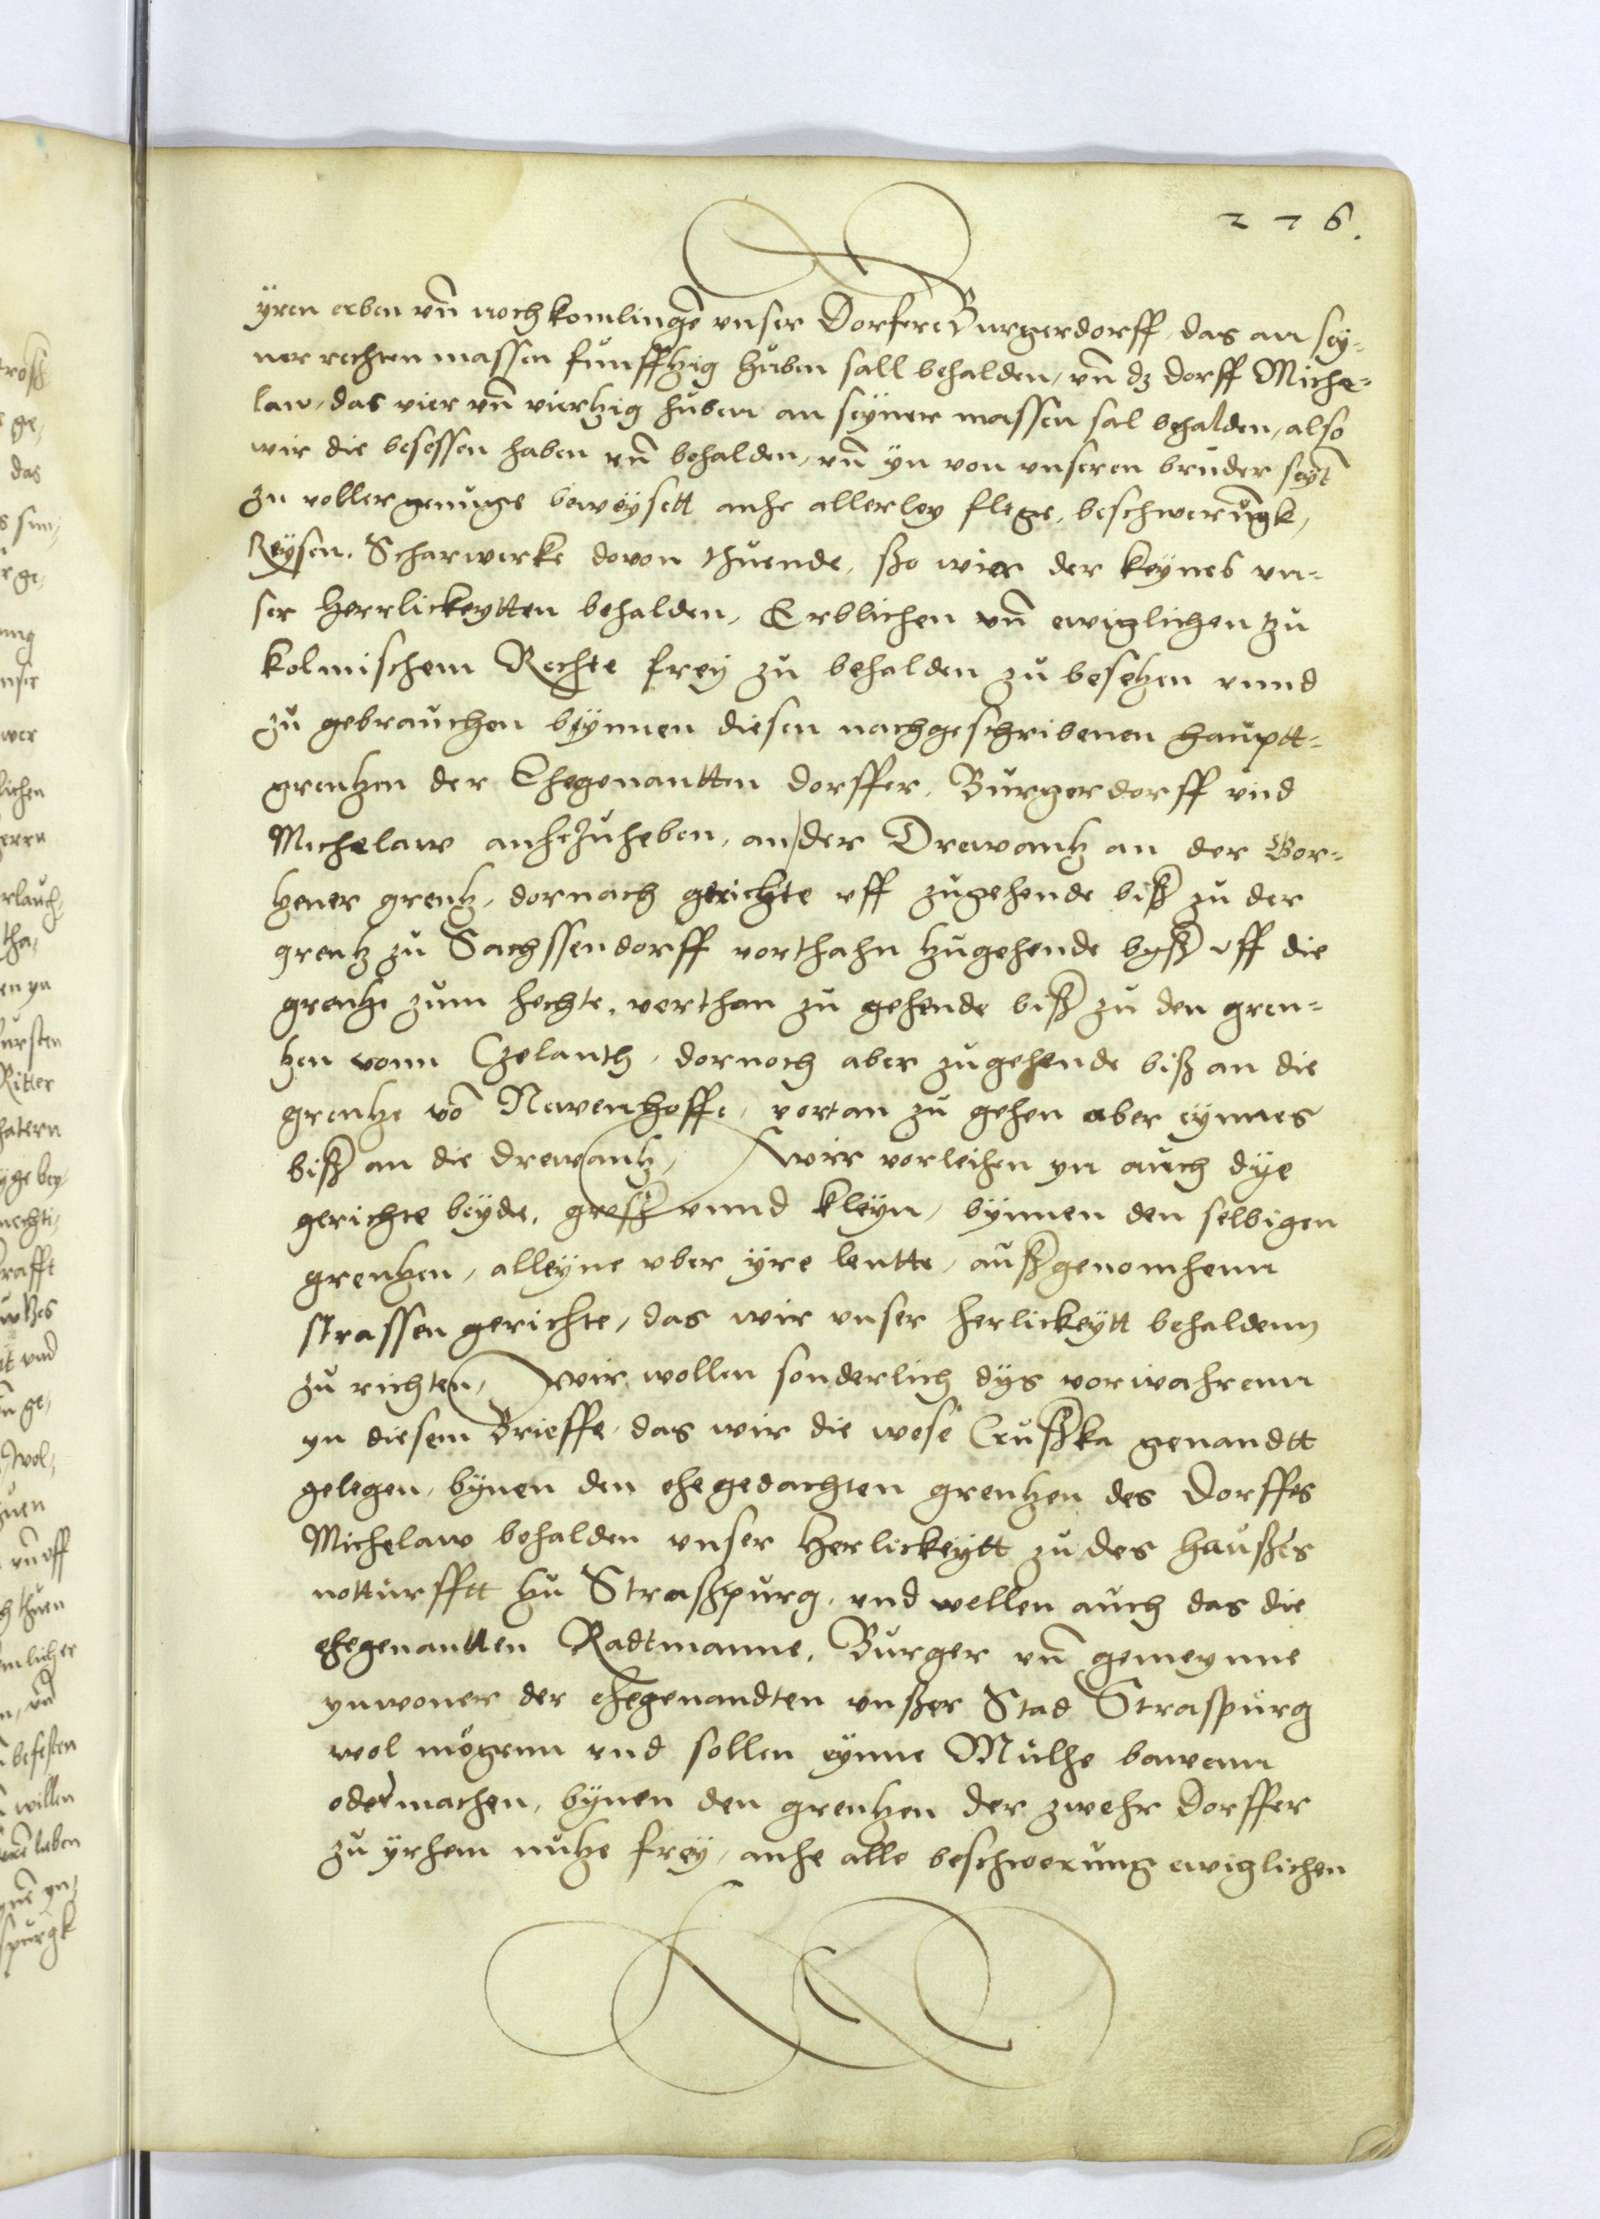 276.
ÿren erben vn̄ nochkomlingē vnser Dorfere Burgerdorff, das an sey=
ner rechten massen funfftzig huben sall behalden, vn̄ dz dorff Miche=
law, das vier vn̄ viertzig huben an seÿner massen sal behalden, also
wir die besessen haben vn̄ behalden, vn̄ ÿn von vnseren bruder seyt
zu voller genuge beweÿsett anhe allerley flege, beschwerūgk,
Reÿsen, Scharwerke dovon thuende, sso wier der keynes vn=
ser herrlickeytten behalden, Erblichen vn̄ ewiglichen tzu
kolmischem Rechte freÿ zu behalden zu besetzen vnnd
zu gebrauchen bÿnnen diesen nachgeschribenen hauptt=
grentzen der Ehegenantten dorffer, Burgerdorff vnd
Michelaw anhezuheben, an der Drewantz an der Gor=
tzener grentz, dornach gerichte vff zugehende biß zu der
grentz zu Sachssendorff vorthahn tzugehende byß vff die
grentze zum hechte, verthan zu gehende biß zu den gren=
tzen vonn Czelanth, dornoch aber zugehende biß an die
grentze vō Newenhoffe, vortan zu gehen aber eÿnnes
biß an die drewantz, Wir vorleihen yn auch dÿe
gerichte beÿde, groß vnnd kleÿn, bÿnnen den selbigen
grentzen, alleÿne vber ÿre leutte, außgenomhenn
strassen gerichte, das wir vnser herlickeÿtt behaldenn
zu richten, Wir wollen sonderlich dÿs vorwahrenn
yn diesem Brieffe, das wir die wese Crußka genandtt
gelegen, bÿnen den ehegedachten grentzen des Dorffes
Michelaw behalden vnser Herlickeÿtt zu des haußes
notturfftt tzu Straßpurg, vnd wellen auch das die
ehegenantten Radtmanne, Burger vn̄ gemeynne
ynwoner der ehegenandten vnßer Stad Straspurg
wol mögenn vnd sollen eÿnne Mulhe bawenn
oder machen, bÿnen den grentzen der zwehr Dorffer
zu ÿrhem nutze freÿ, anhe alle beschwerung ewiglichen